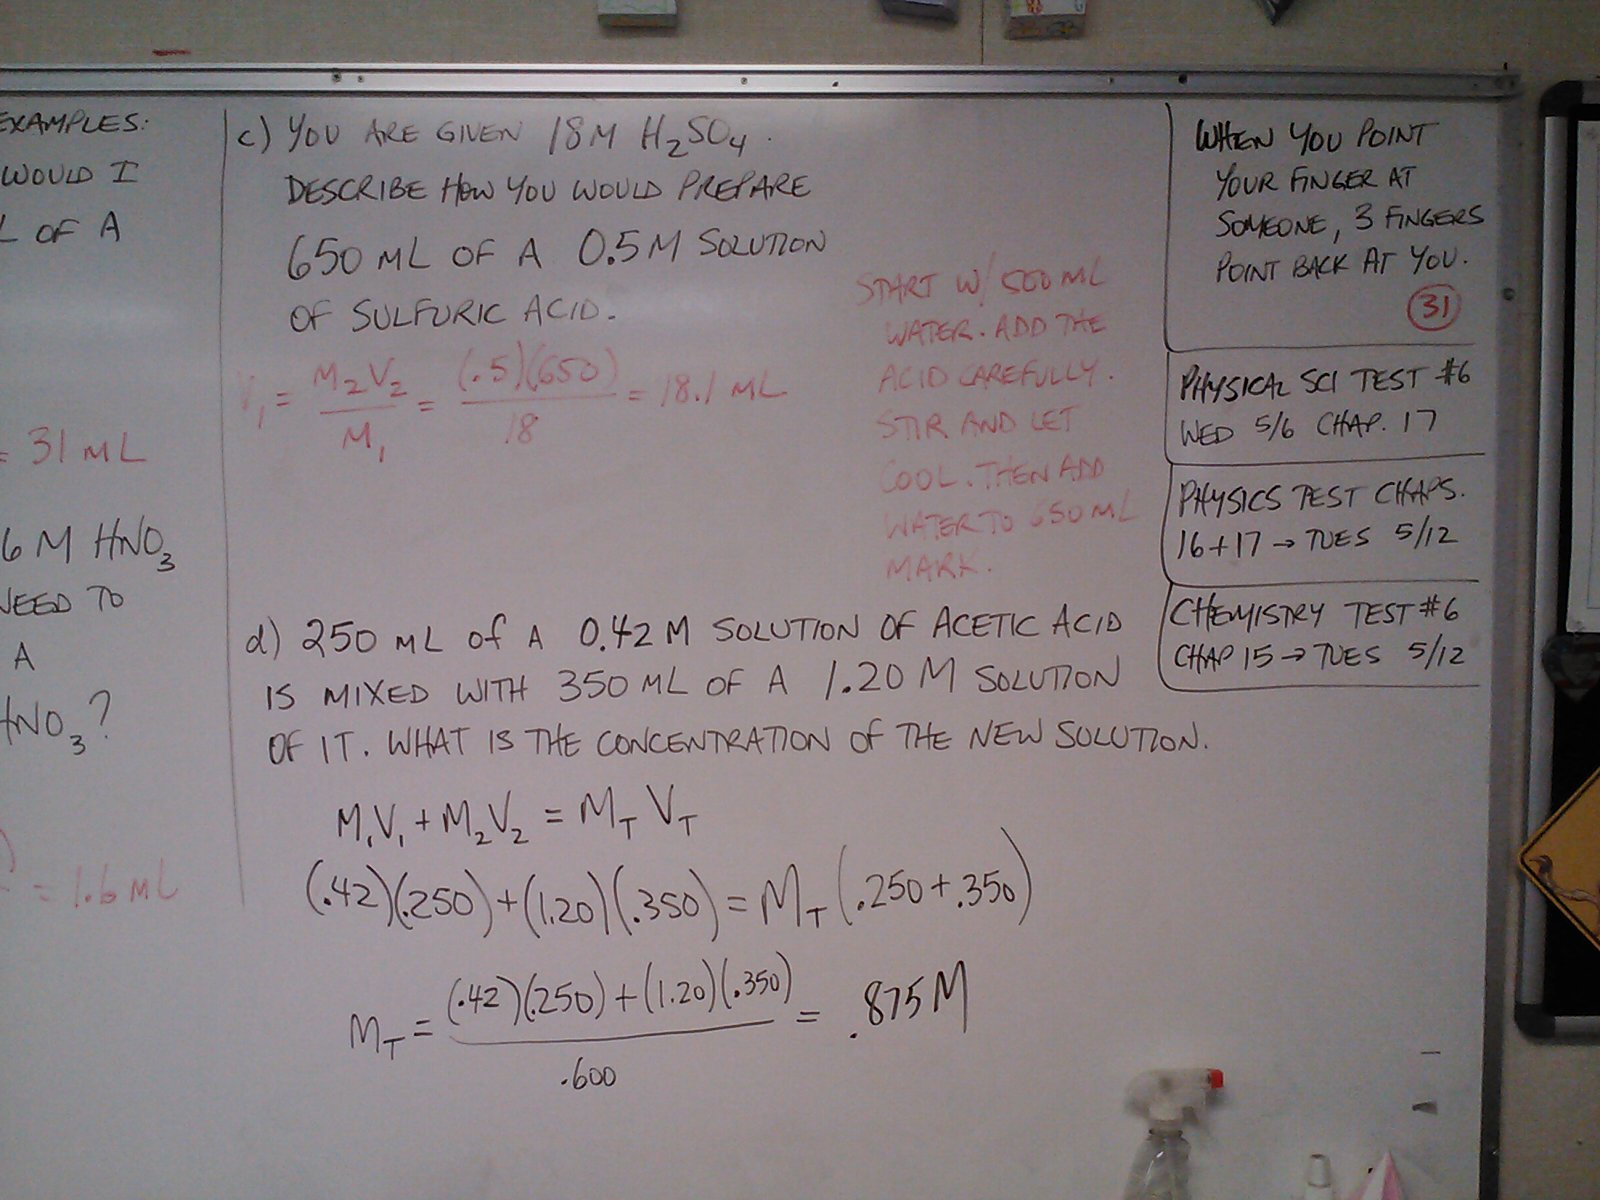 EXAMPLES:
WOULD I
L OF A
= 31 ML
6 M HNO3
NEED TO
A
HNO3?
= 1.6 ML
c) YOU ARE GIVEN 18M H2SO4.
DESCRIBE HOW YOU WOULD PREPARE
650 ML OF A 0.5M SOLUTION
OF SULFURIC ACID.
V1 = M2V2/M1 = (.5)(650)/18 = 18.1 ML
START W/ 500 ML
WATER. ADD THE
ACID CAREFULLY.
STIR AND LET
COOL. THEN ADD
WATER TO 650 ML
MARK.
d) 250 ML OF A 0.42 M SOLUTION OF ACETIC ACID
IS MIXED WITH 350 ML OF A 1.20 M SOLUTION
OF IT. WHAT IS THE CONCENTRATION OF THE NEW SOLUTION.
M1V1 + M2V2 = MT VT
(.42)(.250) + (1.20)(.350) = MT (.250 + .350)
MT = (.42)(.250) + (1.20)(.350)/.600 = .875 M
WHEN YOU POINT
YOUR FINGER AT
SOMEONE, 3 FINGERS
POINT BACK AT YOU.
31
PHYSICAL SCI TEST #6
WED 5/6 CHAP. 17
PHYSICS TEST CHAPS.
16+17 → TUES 5/12
CHEMISTRY TEST #6
CHAP 15 → TUES 5/12